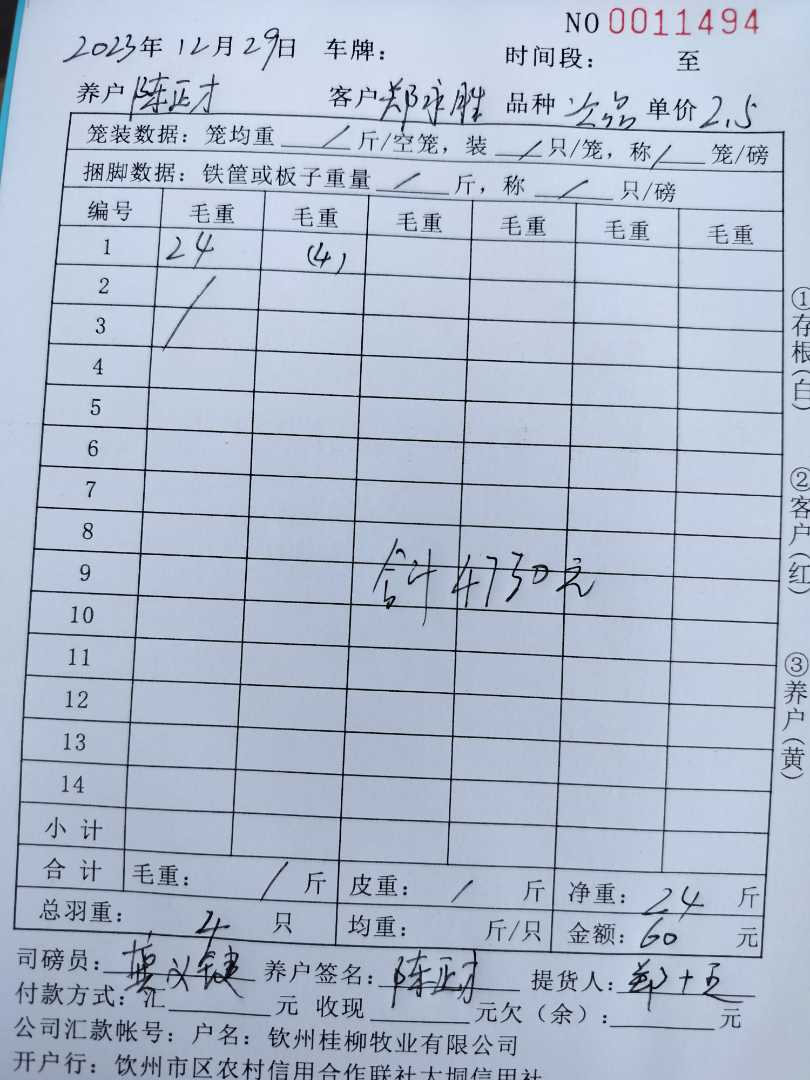 NO 0011494
2023年12月29日 车牌： 时间段： 至
养户 陈正才 客户 郑永胜 品种 次品 单价 2.5
笼装数据：笼均重 / 斤/空笼，装 / 只/笼，称 / 笼/磅
捆脚数据：铁筐或板子重量 / 斤，称 / 只/磅
编号 毛重 毛重 毛重 毛重 毛重 毛重
1 24 (4)
2 /
3
4
5
6
7
8
9
合计 4730元
10
11
12
13
14
小计
合计 毛重： / 斤 皮重： / 斤 净重：24 斤
总羽重： 4 只 均重： 斤/只 金额：60 元
司磅员： 养户签名：陈正才 提货人：
付款方式：汇 元 收现 元欠（余）： 元
公司汇款帐号：户名：钦州桂柳牧业有限公司
开户行：钦州市区农村信用合作联社大垌信用社
①存根(白)
②客户(红)
③养户(黄)